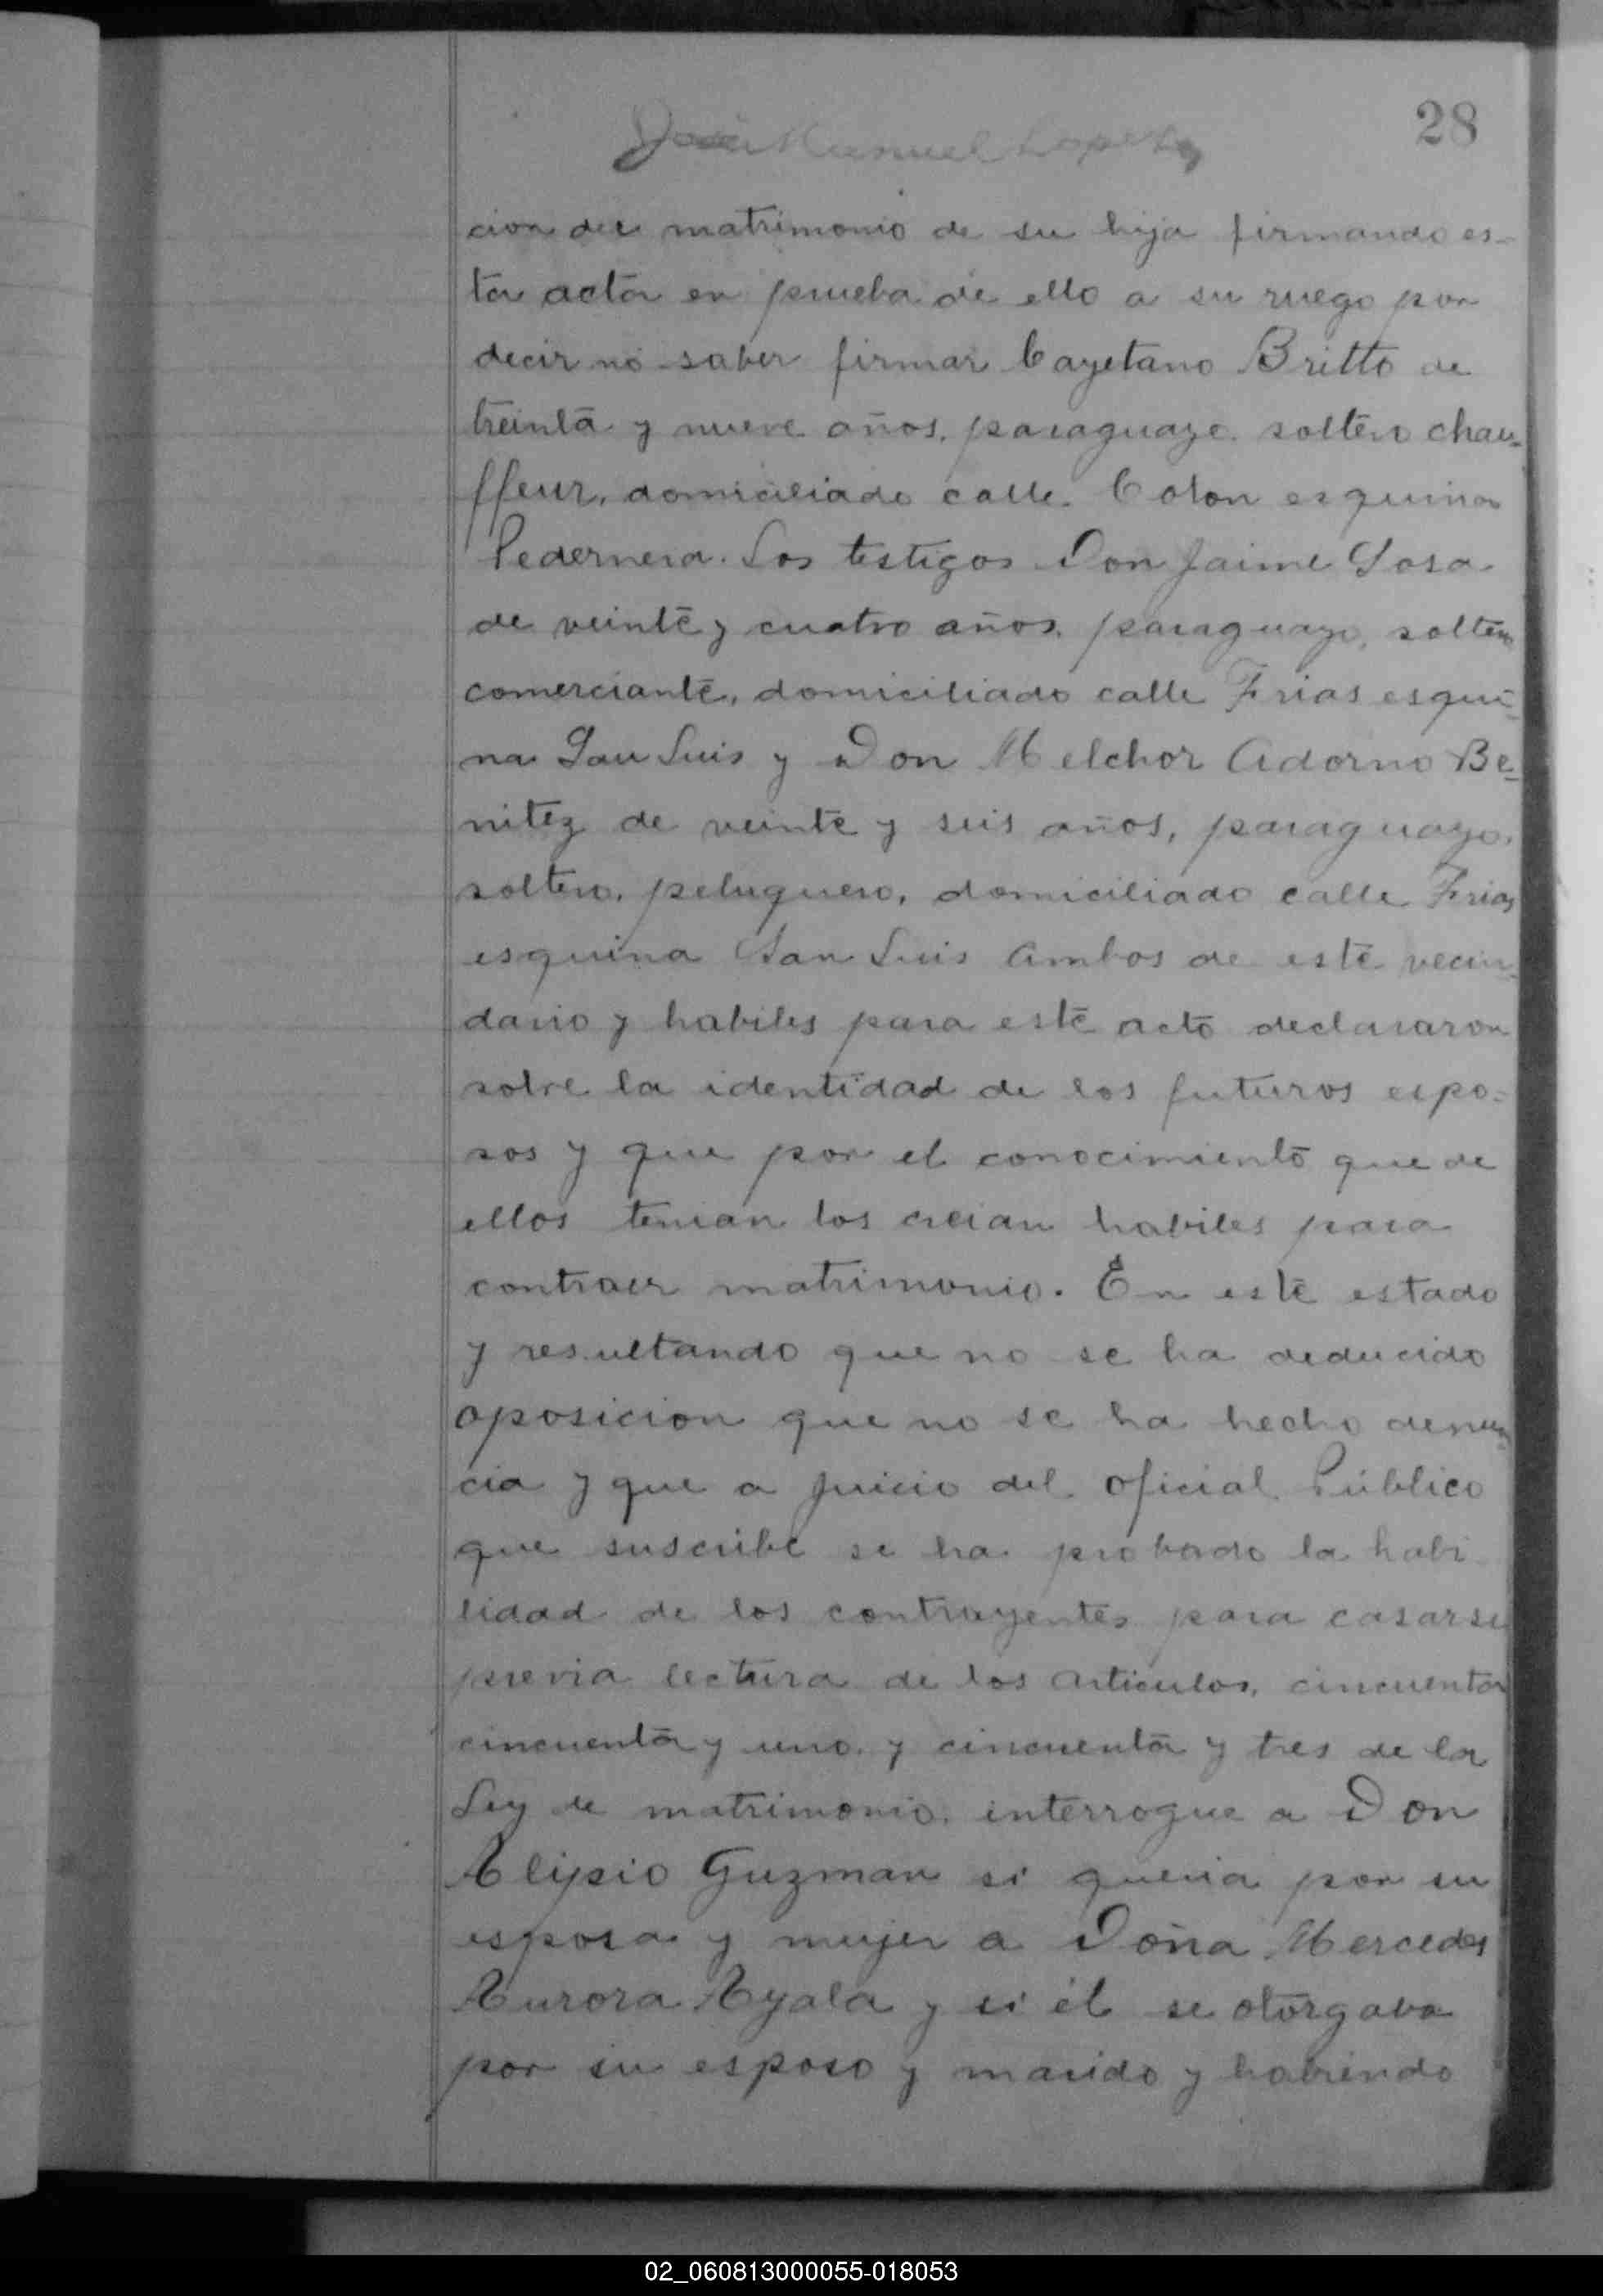 28
José Manuel Lopez
cion del matrimonio de su hija firmando es-
ta acta en prueba de ello a su ruego por
decir no saber firmar Cayetano Britto de
treinta y nueve años, paraguayo, soltero chau-
ffeur, domiciliado calle Colon esquina
Pedernera. Los testigos Don Jaime Sosa
de veinte y cuatro años, paraguayo, soltero
comerciante, domiciliado calle Frias esqui-
na San Luis y Don Melchor Adorno Be-
nitez de veinte y seis años, paraguayo,
soltero, peluquero, domiciliado calle Frias
esquina San Luis ambos de este vecin-
dario y habiles para este acto declararon
sobre la identidad de los futuros espo-
sos y que por el conocimiento que de
ellos tenian los creian habiles para
contraer matrimonio. En este estado
y resultando que no se ha deducido
oposicion que no se ha hecho denun-
cia y que a juicio del oficial Público
que suscribe se ha probado la habi
lidad de los contrayentes para casarse
previa lectura de los articulos, cincuenta
cincuenta y uno y cincuenta y tres de la
Ley de matrimonio, interrogue a Don
Alipsio Guzman si queria por su
esposa y mujer a Doña Mercedes
Aurora Ayala y si él se otorgaba
por su esposo y marido y habiendo
02_060813000055-018053